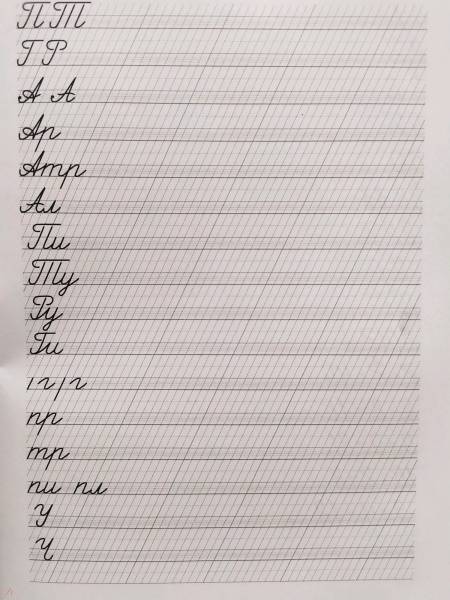 П Т
Г Р
А А
Ар
Атр
Ал
Пи
Ту
Ру
Ги
пр
тр
пи пл
У